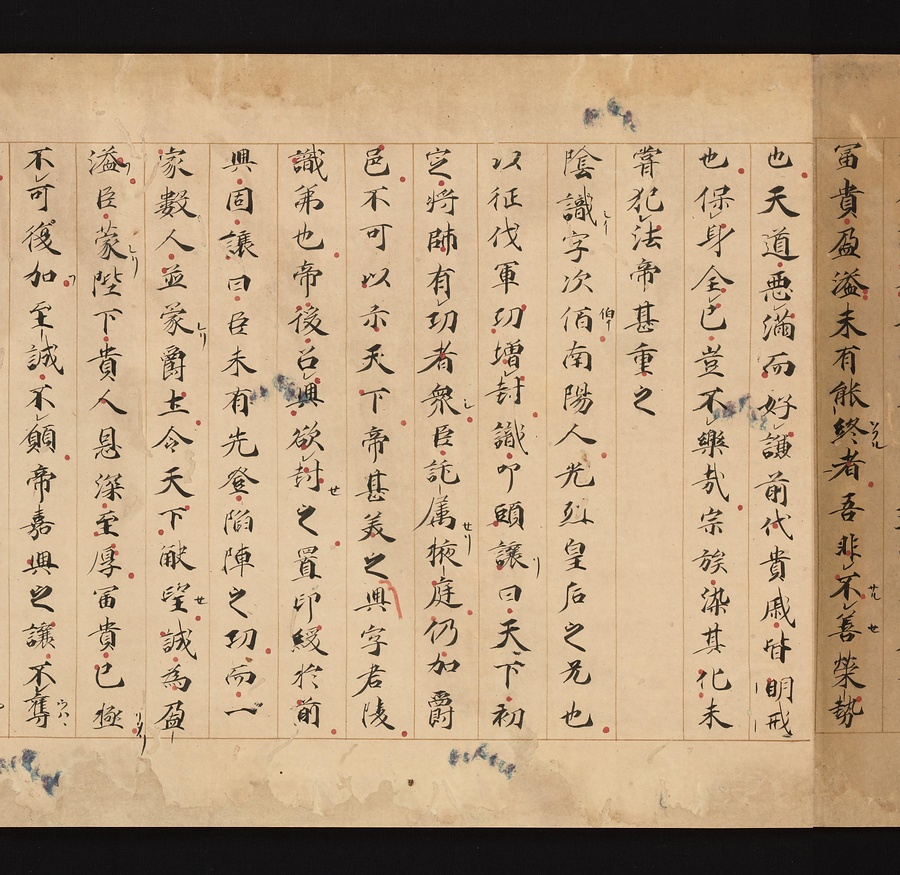 冨貴盈溢未有能終者吾非不善榮勢
也天道惡滿而好謙前代貴戚皆明戒
也保身全己豈不樂哉宗族染其化未
嘗犯法帝甚重之
陰識字次伯南陽人光烈皇后之兄也
以征伐軍功增封識叩頭讓曰天下初
定將帥有功者衆臣託属掖庭仍加爵
邑不可以示天下帝甚美之興字君陵
識弟也帝後召興欲封之置印綬於前
興固讓曰臣未有先登陷陣之功而一
家數人並蒙爵土令天下觖望誠為盈
溢臣蒙陛下貴人恩深至厚冨貴已極
不可復加至誠不願帝嘉興之讓不奪